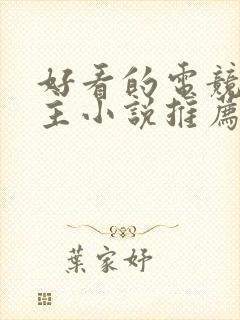 好看的電競
主小說推薦
葉家妤